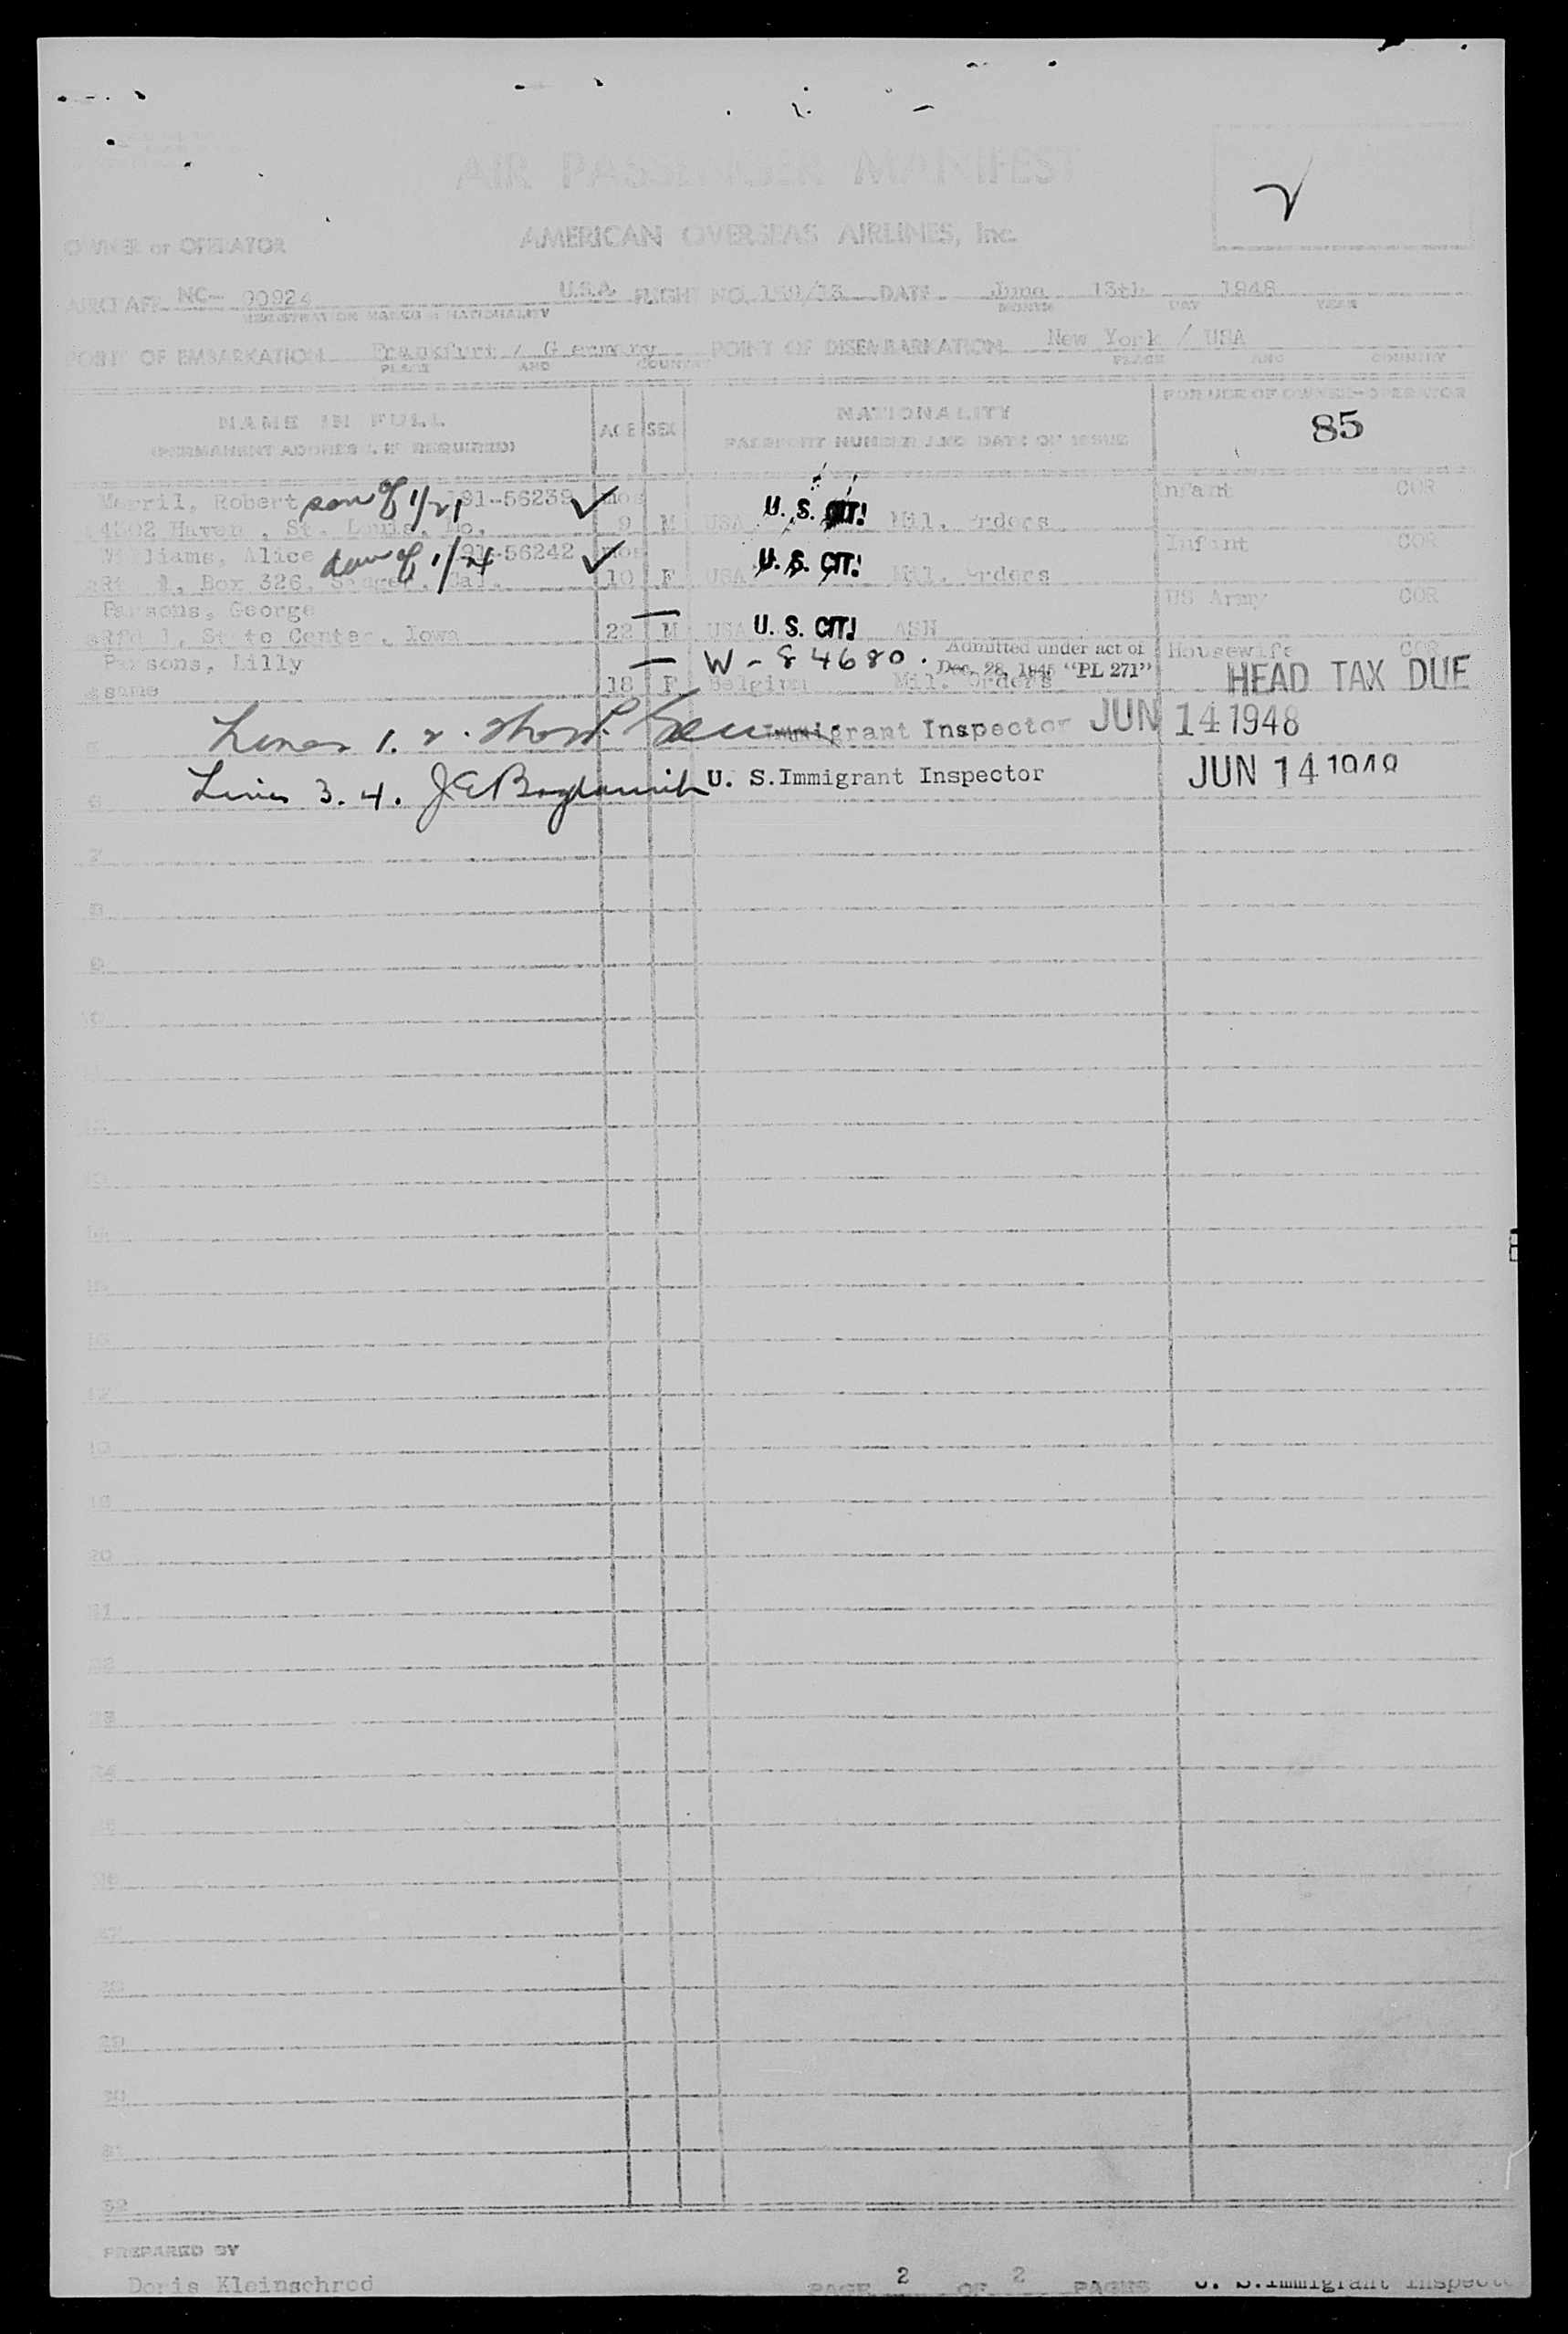 AIR PASSENGER MANIFEST
OWNER or OPERATOR AMERICAN OVERSEAS AIRLINES, Inc.
AIRCRAFT NC- 90924 U.S.A. FLIGHT NO. DATE June 13th 1948
REGISTRATION MARKS & NATIONALITY MONTH DAY YEAR
POINT OF EMBARKATION Frankfurt / G ermany POINT OF DISEMBARKATION New York / USA
PLACE AND COUNTRY PLACE AND COUNTRY
NAME IN FULL AGE SEX NATIONALITY FOR USE OF OWNER-OPERATOR
(PERMANENT ADDRESS IF REQUIRED) PASSPORT NUMBER AND DATE OF ISSUE 85
Merril, Robert son of 1/21 91-56239 mos U. S. CIT! nfant COR
4302 Haven , St. Louis, Mo. 9 M USA Mil. rders
Williams, Alice dau of 1/24 91-56242 mos U. S. CIT! Infant COR
Box 326, Cal. 10 F USA Mil. rders
Parsons, George US Army COR
Rfd 1, State Center, Iowa 22 M USA U. S. CIT! ASN
Parsons, Lilly W - 84680. Admitted under act of Housewife COR
Dec. 28, 1945 "PL 271"
same 18 F Belgium Mil. Orders HEAD TAX DUE
Lines 1. 2. Immigrant Inspector JUN 14 1948
Lines 3. 4. U. S.Immigrant Inspector JUN 14 1948
6
7
8
9
10
11
12
13
14
15
16
17
18
19
20
21
22
23
24
25
26
27
28
29
30
31
32
PREPARED BY
Doris Kleinschrod PAGE 2 OF 2 PAGES U. S.Immigrant Inspecto